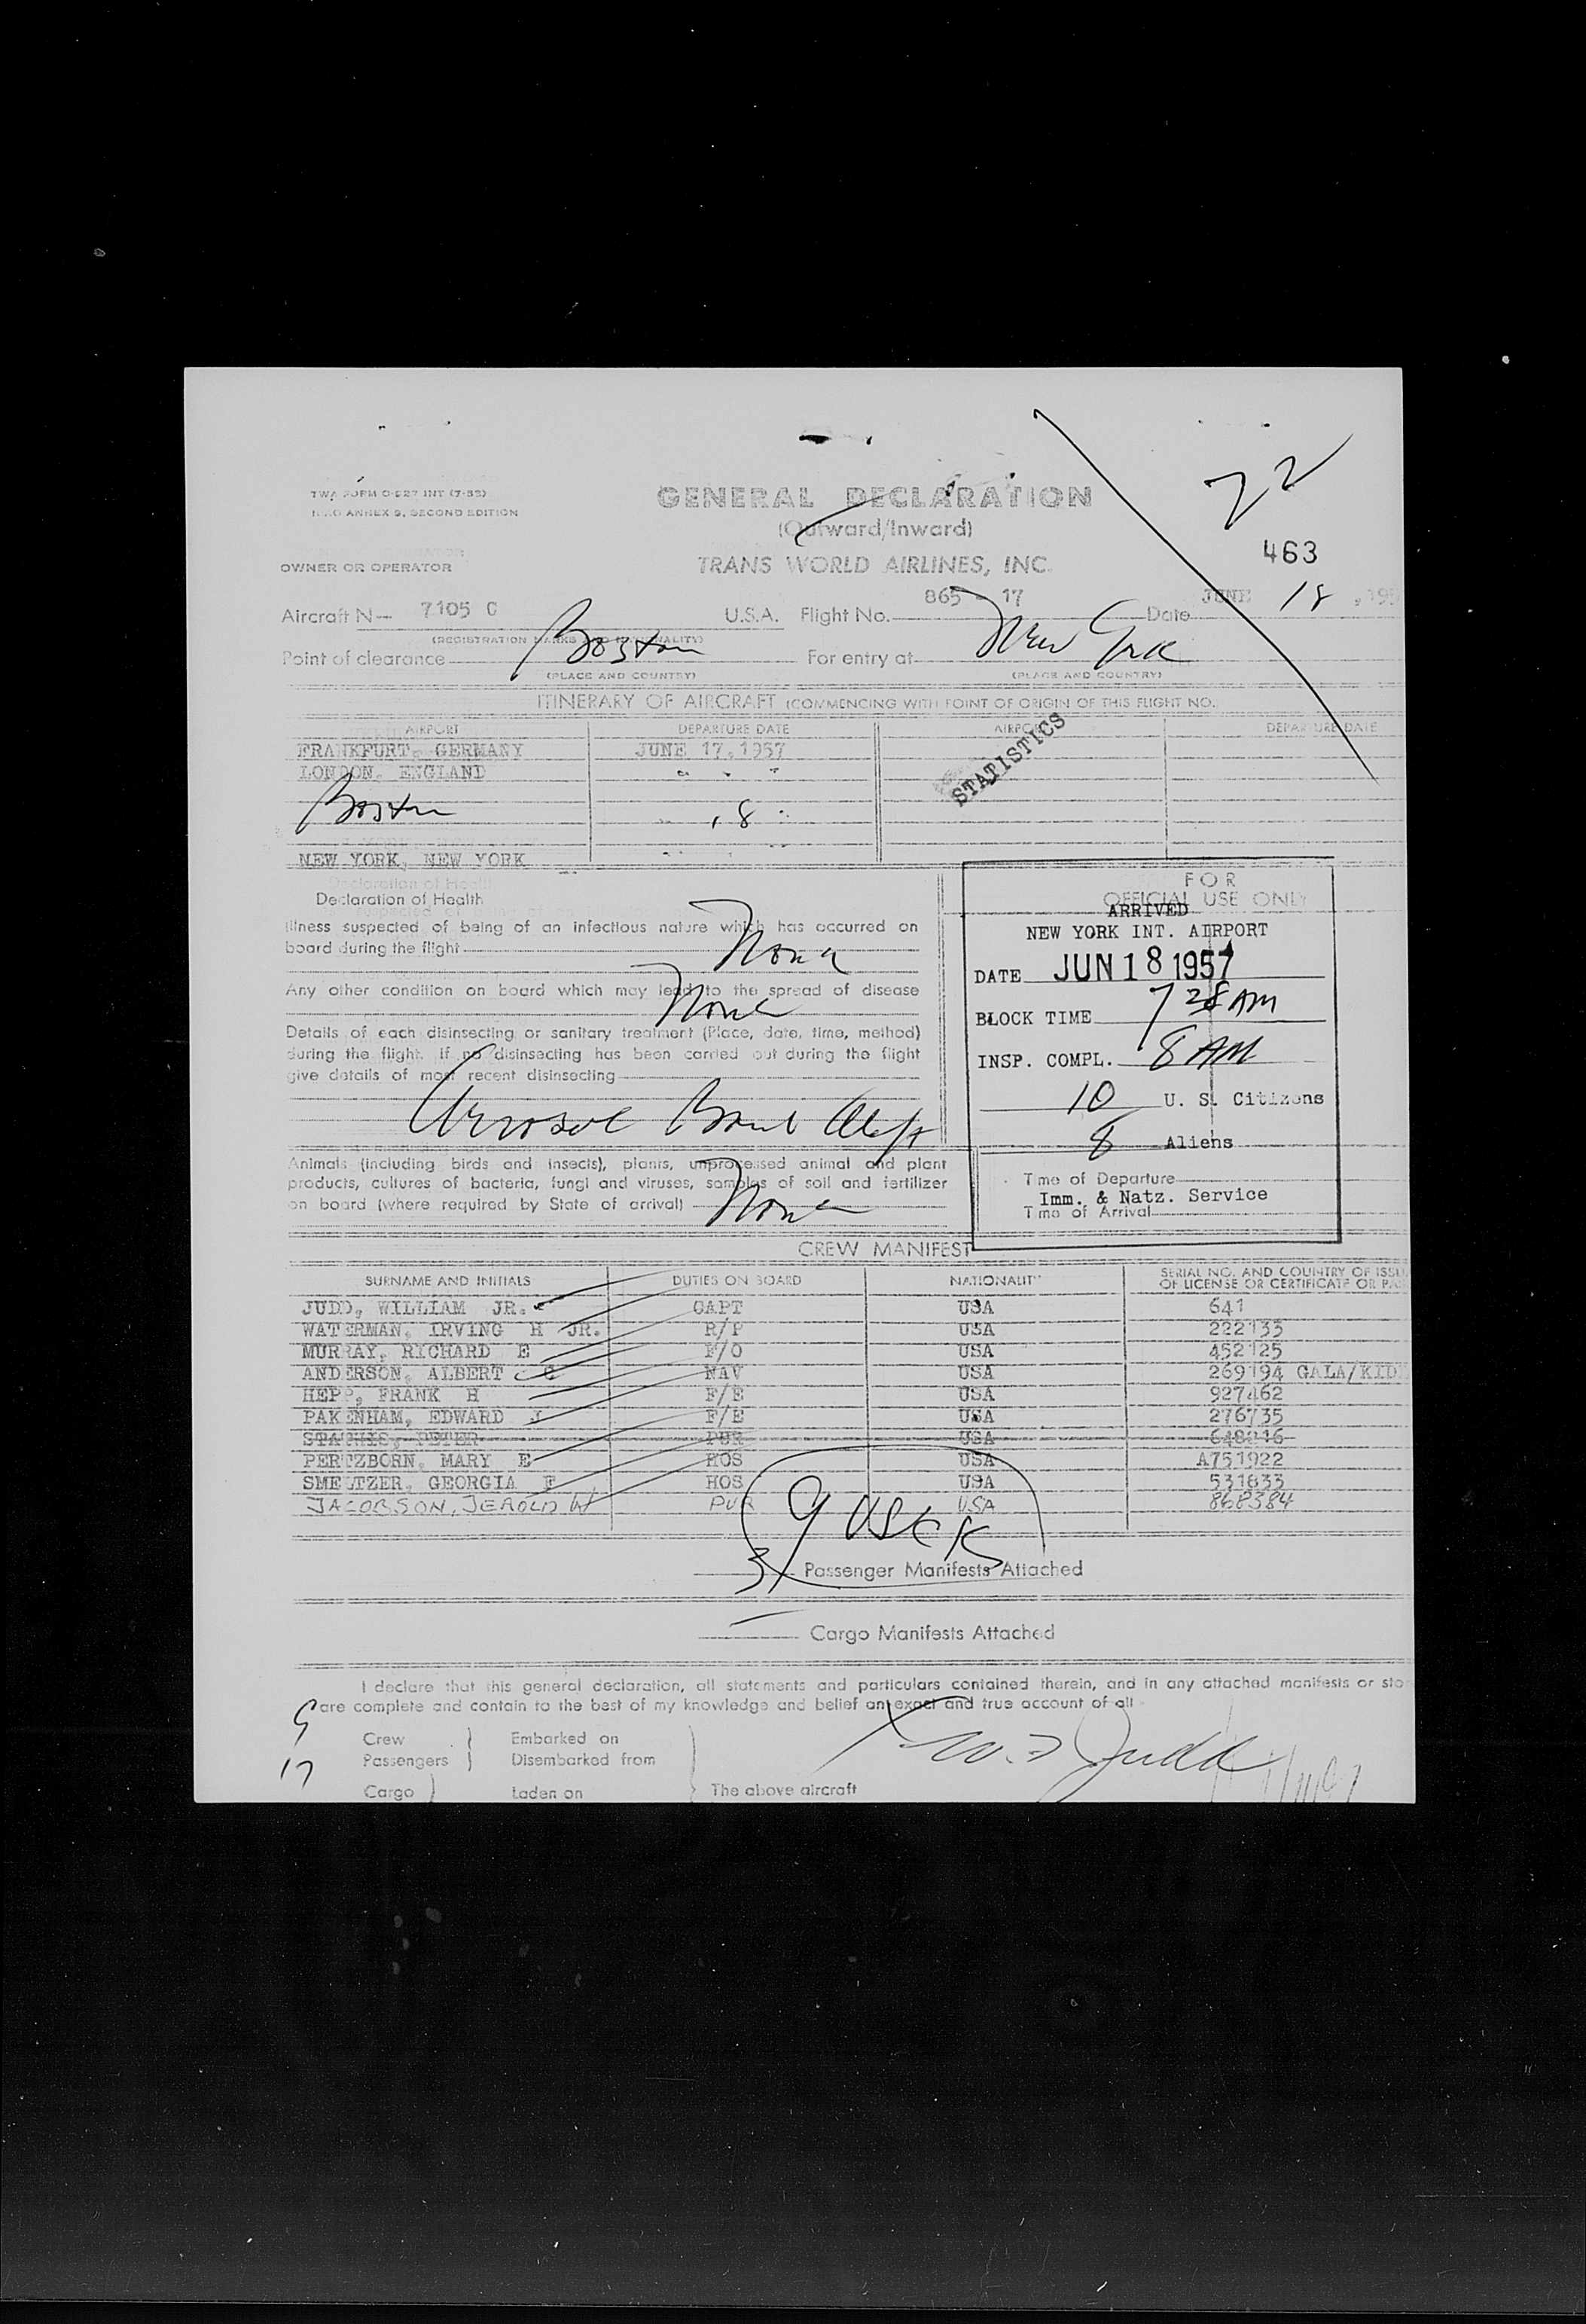 22
TWA FORM O-527 INT (7-55)
ICAO ANNEX 9, SECOND EDITION
GENERAL DECLARATION
(Outward/Inward)
463
OWNER OR OPERATOR
TRANS WORLD AIRLINES, INC.
Aircraft N— 7105 C U.S.A. Flight No. 865 - 17 Date JUNE 18, 195
(REGISTRATION MARKS AND NATIONALITY)
Point of clearance Boston For entry at New York
(PLACE AND COUNTRY) (PLACE AND COUNTRY)
ITINERARY OF AIRCRAFT (COMMENCING WITH POINT OF ORIGIN OF THIS FLIGHT NO.
AIRPORT DEPARTURE DATE AIRPORT DEPARTURE DATE
FRANKFURT, GERMANY JUNE 17, 1957
LONDON, ENGLAND " " "
STATISTICS
Boston 18
NEW YORK, NEW YORK
Declaration of Health
Illness suspected of being of an infectious nature which has occurred on
board during the flight None
Any other condition on board which may lead to the spread of disease
None
Details of each disinsecting or sanitary treatment (Place, date, time, method)
during the flight. If no disinsecting has been carried out during the flight
give details of most recent disinsecting
Aerosol Bomb
Animals (including birds and insects), plants, unprocessed animal and plant
products, cultures of bacteria, fungi and viruses, samples of soil and fertilizer
on board (where required by State of arrival) None
FOR
OFFICIAL USE ONLY
ARRIVED
NEW YORK INT. AIRPORT
DATE JUN 18 1957
BLOCK TIME 7 28 AM
INSP. COMPL. 8 AM
10 U. S. Citizens
8 Aliens
Time of Departure
Imm. & Natz. Service
Time of Arrival
CREW MANIFEST
SURNAME AND INITIALS DUTIES ON BOARD NATIONALITY SERIAL NO. AND COUNTRY OF ISSU
OF LICENSE OR CERTIFICATE OR PA
JUDD, WILLIAM JR. CAPT USA 641
WATERMAN, IRVING H JR. R/P USA 222133
MURRAY, RICHARD E F/O USA 452125
ANDERSON, ALBERT C NAV USA 269194 GALA/KID
HEPP, FRANK H F/E USA 927462
PAKENHAM, EDWARD J F/E USA 276735
STATHIS, PETER PUR USA 648216
PERTZBORN, MARY E HOS USA A751922
SMELTZER, GEORGIA F HOS USA 531833
JACOBSON, JEROLD W PUR USA 868384
9 USCK
3 Passenger Manifests Attached
Cargo Manifests Attached
I declare that this general declaration, all statements and particulars contained therein, and in any attached manifests or sto
are complete and contain to the best of my knowledge and belief an exact and true account of all
9 Crew Embarked on
17 Passengers Disembarked from
Cargo Laden on The above aircraft
W. Judd